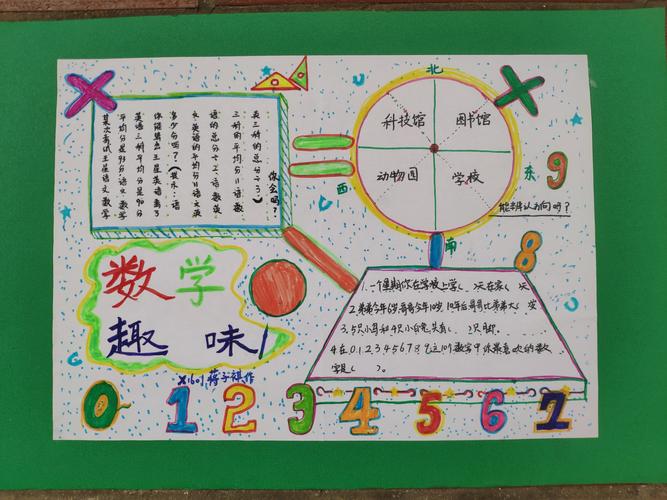 某次考试王星语文数学
平均分是93分语文数学
英语三科平均分是90分
你能算出王星英语考了
多少分吗？(提示：语
文英语的平均分=语文英
语的总分÷2；语数英
三科的平均分=语数
英三科的总分÷3)
你会吗？
北
科技馆 图书馆
西 东
动物园 学校
南
能辨认方向吗？
9
8
数学
趣味
蒋子祺作
1.一个星期你在学校上学( )天在家( )天
2.弟弟今年6岁,哥哥今年10岁,10年后哥哥比弟弟大( )岁
3.5只小鸟和4只小白兔共有( )只脚.
4.在0.1.2.3.4.5.6.7.8.9这10个数字中你最喜欢的数
字是( )。
0 1 2 3 4 5 6 7